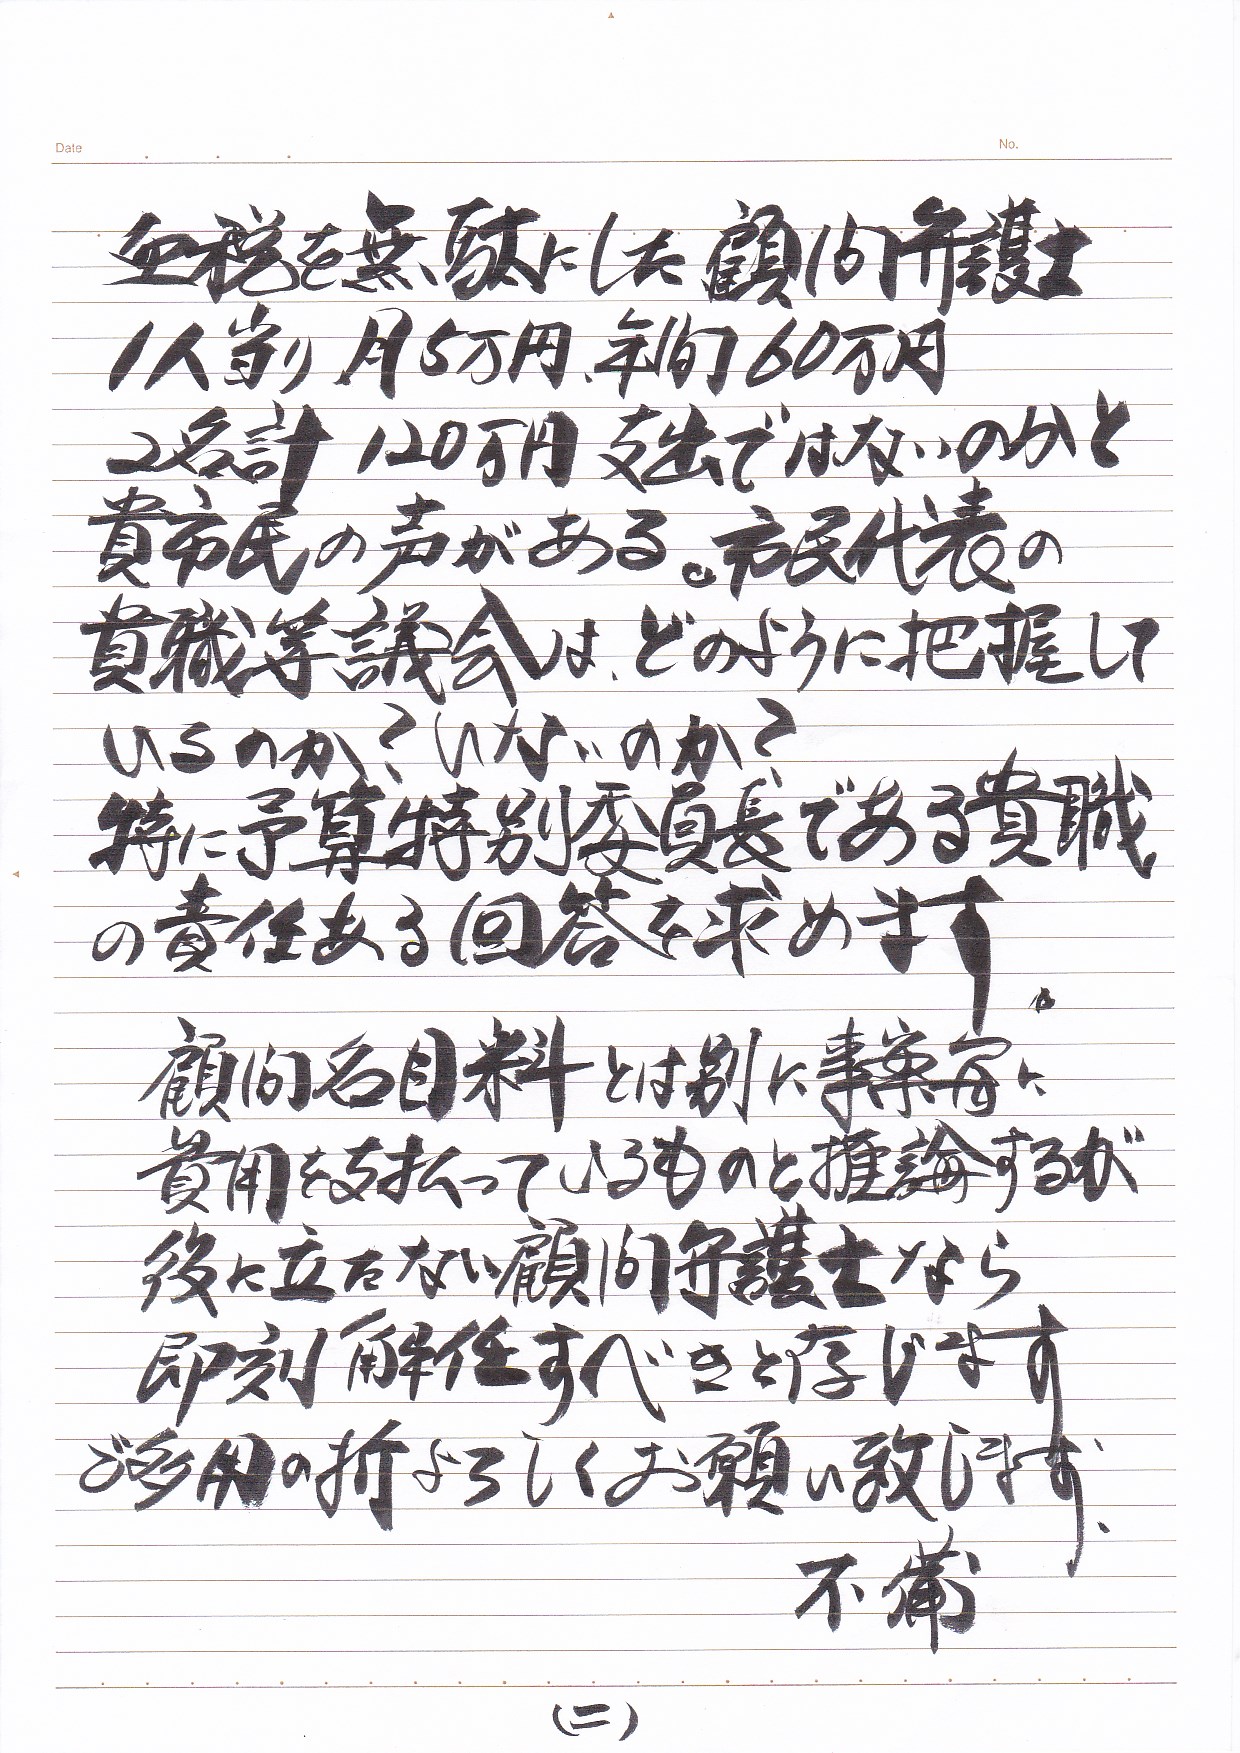 Date
No.
血税を無駄にした顧問弁護士
1人当り 月5万円、年間60万円
2名計 120万円 支出ではないのかと
貴市民の声がある。市民代表の
貴職等議会は、どのように把握して
いるのか？いないのか？
特に予算特別委員長である貴職
の責任ある回答を求めます。
顧問名目料とは別に事案毎に
費用を支払っているものと推論するが
後に立たない顧問弁護士なら
即刻解任すべきと存じます
ご多用の折よろしくお願い致します、
不備
(二)